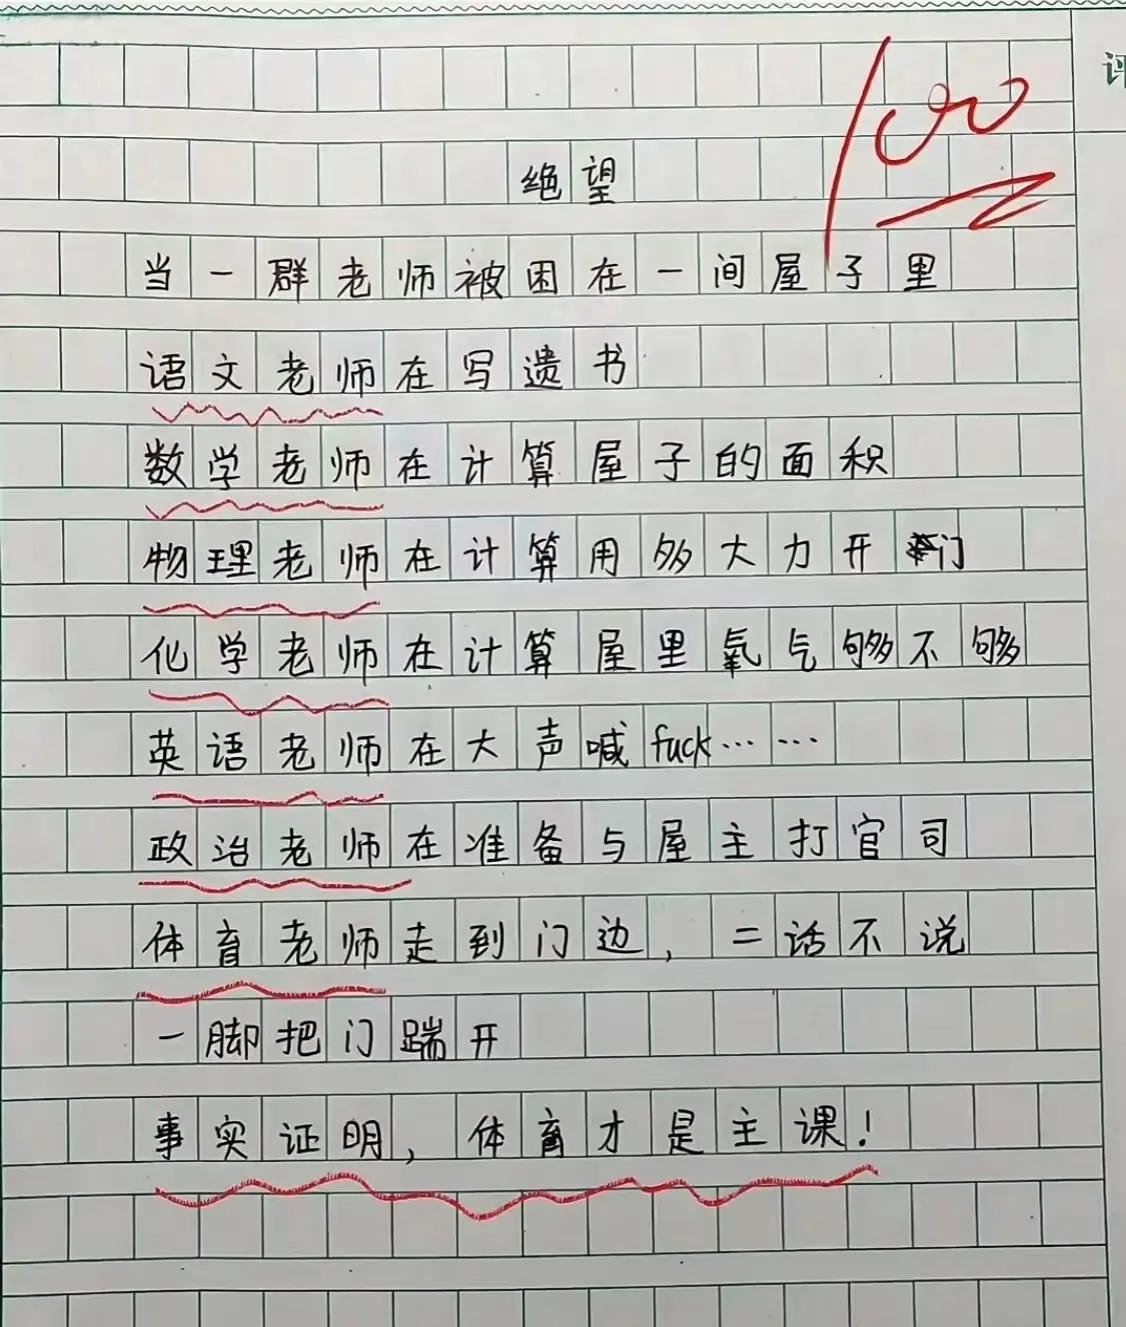 评
100
绝望
当一群老师被困在一间屋子里
语文老师在写遗书
数学老师在计算屋子的面积
物理老师在计算用多大力开门
化学老师在计算屋里氧气够不够
英语老师在大声喊fuck……
政治老师在准备与屋主打官司
体育老师走到门边，二话不说
一脚把门踹开
事实证明，体育才是主课！